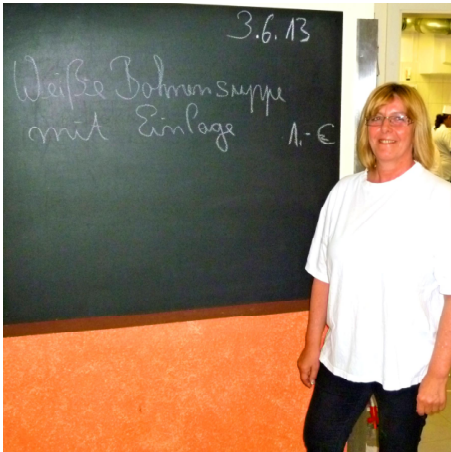 3.6.13
Weiße Bohnensuppe
mit Einlage 1.- €